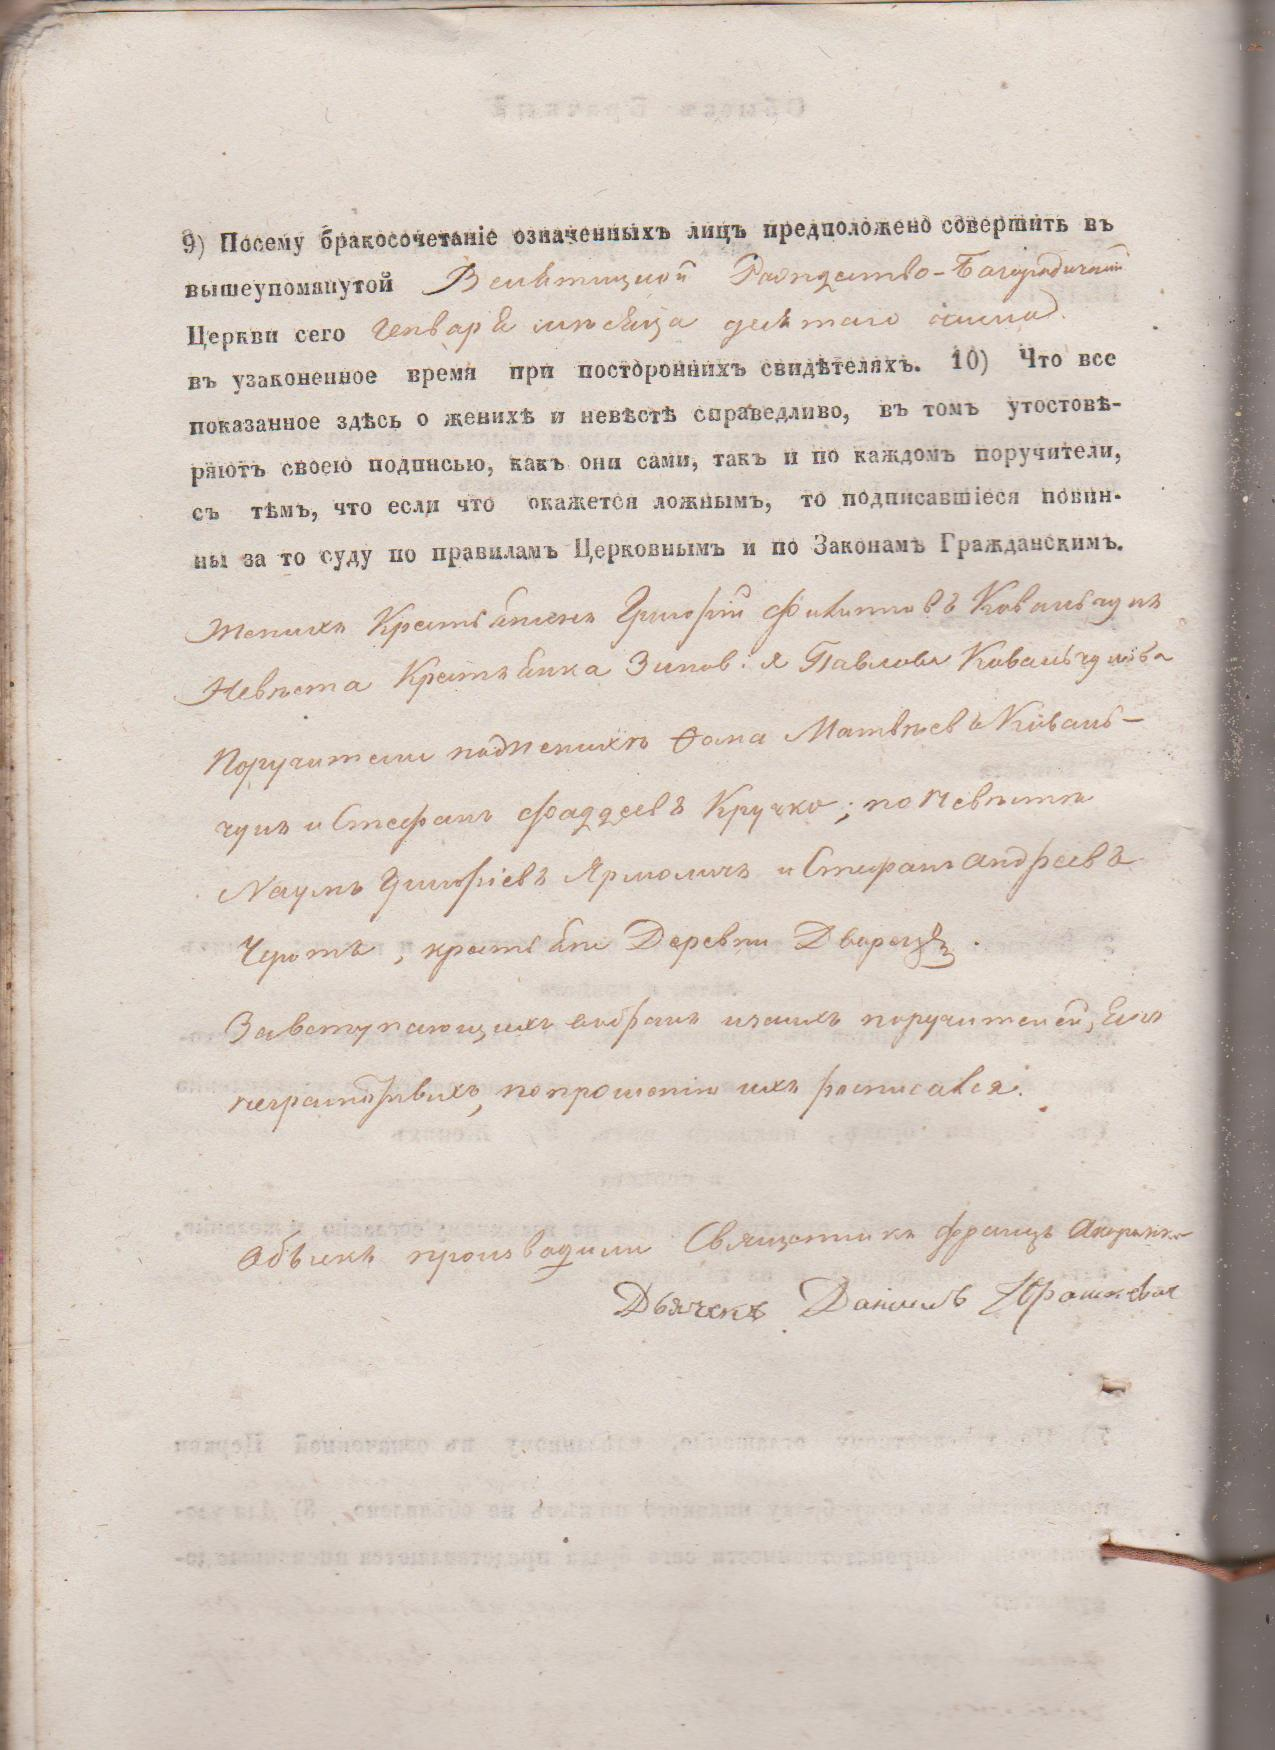 9) Посему бракосочетаніе означенныхъ лицъ предположено совершить въ
вышеупомянутой Велѣтицкой Рождество-Богородичной
Церкви сего Генваря мѣсяца девятаго числа
въ узаконенное время при постороннихъ свидѣтеляхъ. 10) Что все
показанное здѣсь о женихѣ и невѣстѣ справедливо, въ томъ утостовѣ-
ряютъ своею подписью, какъ они сами, такъ и по каждомъ поручители,
съ тѣмъ, что если что окажется ложнымъ, то подписавшіеся повин-
ны за то суду по правиламъ Церковнымъ и по Законамъ Гражданскимъ.
Женихъ Крестьянинъ Григорій Филиповъ Ковальчукъ
Невѣста Крестьянка Зиновія Павлова Ковальчукова
Поручители по Женихѣ Фома Матвѣевъ Коваль-
чукъ и Стефанъ Фаддеевъ Кручко; по Невѣстѣ
Наумъ Григоріевъ Ярмоличъ и Стефанъ Андреевъ
крестьяне Деревни Дворец
За вступающихъ въ бракъ и ихъ поручителей,
неграмотныхъ, по прошенію ихъ росписался.
Обыскъ производили Священникъ Францъ
Дьячекъ Даніилъ Юрашкевич